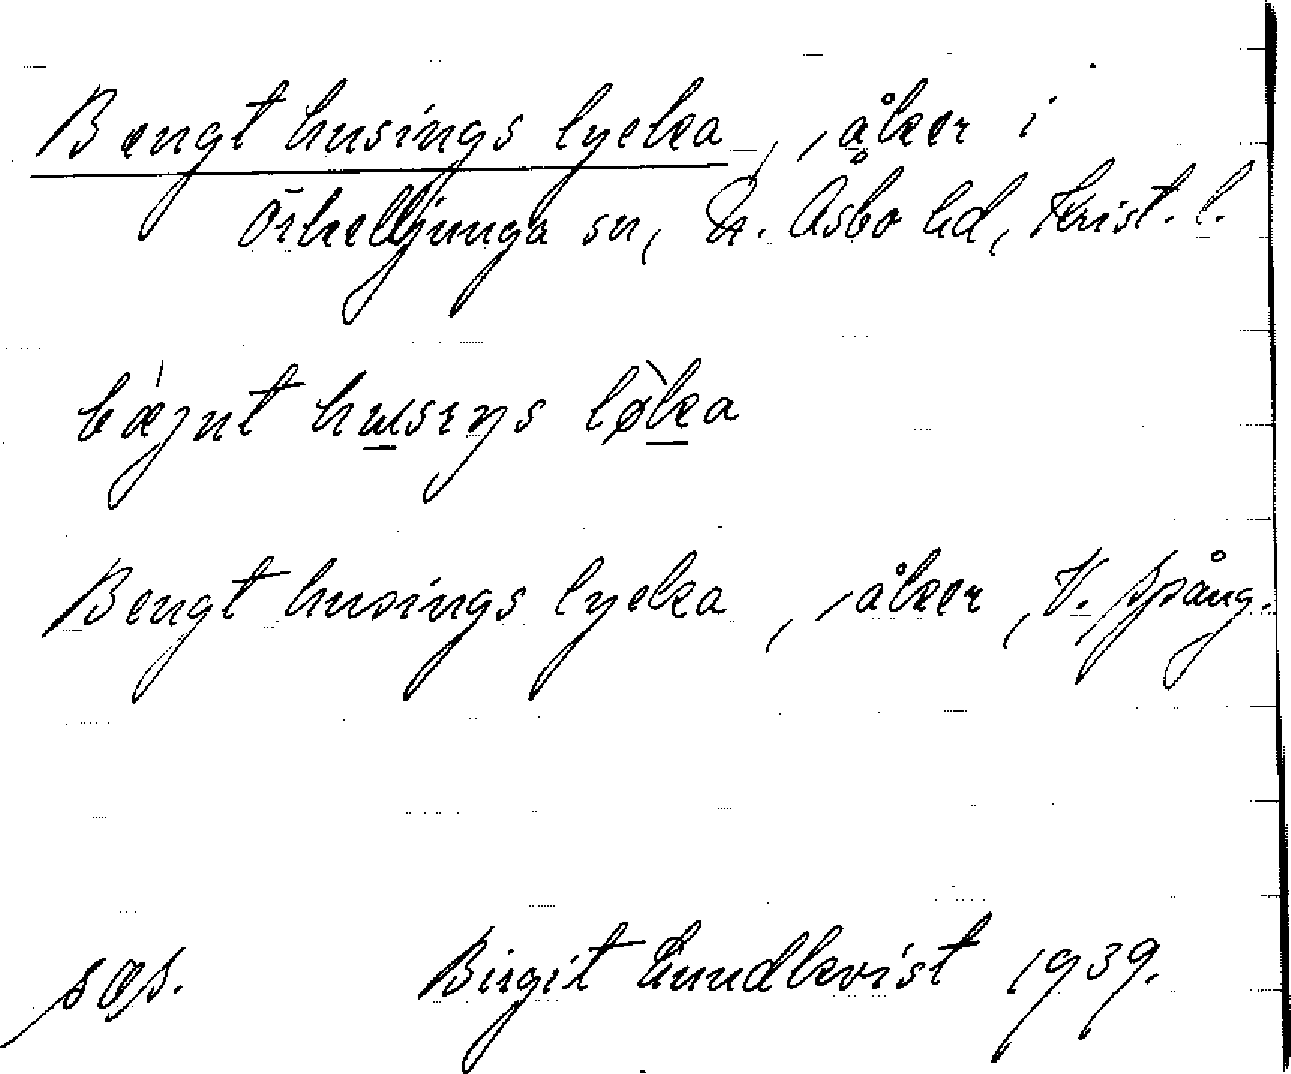 Bengt husings lycka, åker i
Örkelljunga sn, N. Åsbo hd, Krist. l.
bæjnt husiŋs løka
Bengt husings lycka, åker, V. Spång.
sæs. Birgit Lundkvist 1939.